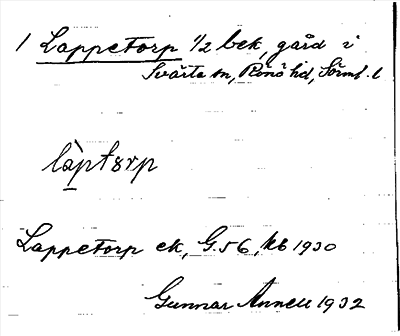 1 Lappetorp 1/2 bek, gård i
Svärta sn, Rönö hd, Sörml. l
làptɤrp
Lappetorp ek, G. 56, kb 1930
Gunnar Annell 1932